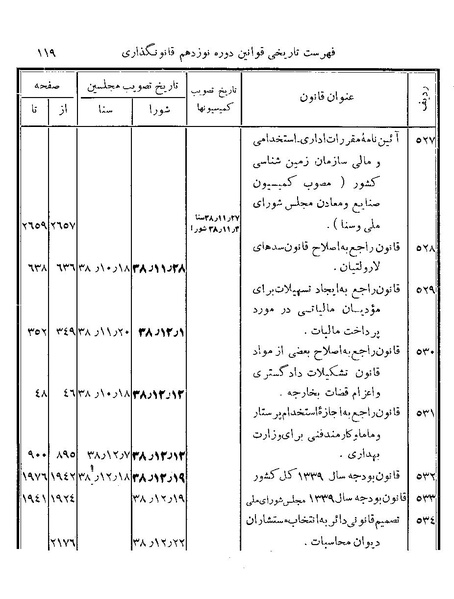 فهرست تاریخی قوانین دوره نوزدهم قانونگذاری ۱۱۹
ردیف عنوان قانون تاریخ تصویب کمیسیونها تاریخ تصویب مجلسین صفحه
شورا سنا از تا
۵۲۷ آئین‌نامهٔ مقررات اداری-استخدامی
و مالی سازمان زمین شناسی
کشور ( مصوب کمیسیون
صنایع و معادن مجلس شورای
ملی و سنا ) . ۳۸٫۱۱٫۲۷ سنا ۲۶۵۷ ۲۶۵۹
شورا
۵۲۸ قانون راجع به اصلاح قانون سدهای
لار و لتیان . ۳۸٫۱۱٫۲۸ ۳۸٫۱۰٫۱۸ ۶۳۶ ۶۳۸
۵۲۹ قانون راجع به ایجاد تسهیلات برای
مؤدیان مالیاتی در مورد
پرداخت مالیات . ۳۸٫۱۲٫۱ ۳۸٫۱۱٫۲۰ ۳۴۹ ۳۵۲
۵۳۰ قانون راجع به اصلاح بعضی از مواد
قانون تشکیلات دادگستری
و اعزام قضات بخارجه . ۳۸٫۱۲٫۱۲ ۳۸٫۱۰٫۱۸ ۴۶ ۴۸
۵۳۱ قانون راجع به اجازهٔ استخدام پرستار
و ماما و کارمند فنی برای وزارت
بهداری . ۳۸٫۱۲٫۱۲ ۳۸٫۱۲٫۷ ۸۹۵ ۹۰۰
۵۳۲ قانون بودجه سال ۱۳۳۹ کل کشور ۳۸٫۱۲٫۱۹ ۳۸٫۱۲٫۱۸ ۱۹۴۲ ۱۹۷۶
۵۳۳ قانون بودجه سال ۱۳۳۹ مجلس شورای ملی ۳۸٫۱۲٫۱۹ ۱۹۲۴ ۱۹۴۱
۵۳۴ تصمیم قانونی دائر به انتخاب مستشاران
دیوان محاسبات . ۳۸٫۱۲٫۲۲ ۲۱۷۶